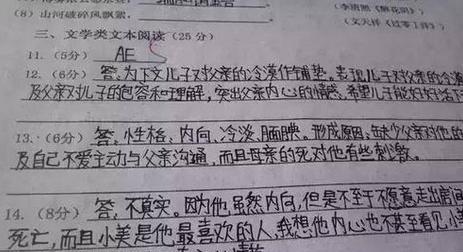 (李清照《醉花阴》)
(8) 山河破碎风飘絮,
(文天祥《过零丁洋》)
三、文学类文本阅读(25分)
11. (5分) AE
12. (6分) 答,为下文儿子对父亲的冷漠作铺垫,表现儿子对父亲的冷漠
及父亲对儿子的包容和理解,突出父亲内心的情感,希望儿子能好好活下
13. (6分) 答,性格、内向、冷淡、腼腆。形成原因:缺少父亲对他的
及自己不爱主动与父亲沟通,而且母亲的死对他有些刺激。
14. (8分) 答,不真实。因为他虽然内向,但是不至于不愿意走出房间
死亡,而且小美是他最喜欢的人,我想他内心也不甚至看见小美